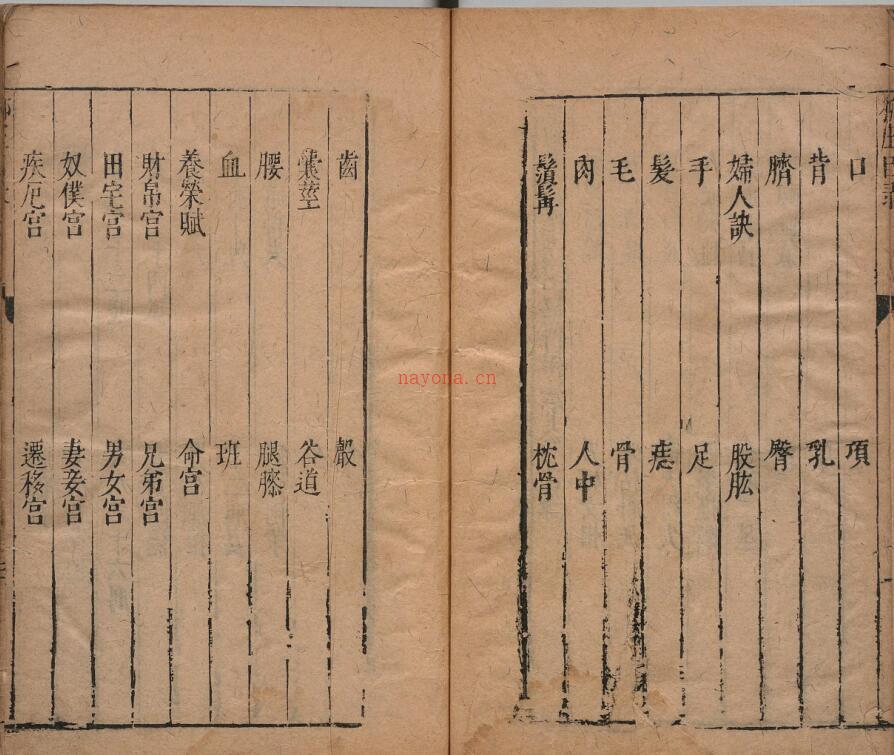 口 項
背 乳
臍 臀
婦人訣 股肱
手 足
髮 痣
毛 骨
肉 人中
鬚髯 枕骨
齒 聲
囊莖 谷道
腰 腿膝
血 班
養榮賦 命宮
財帛宮 兄弟宮
田宅宮 男女宮
奴僕宮 妻妾宮
疾厄宮 遷移宮
nayona.cn